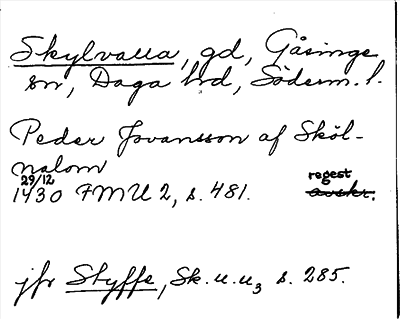 Skylvalla, gd, Gåsinge
sn, Daga hd, Söderm. l.
Peder Jovansson af Sköl-
nalom
29/12
1430 FMU 2, s. 481.
regest
avskr.
jfr Styffe, Sk. u. u3 s. 285.